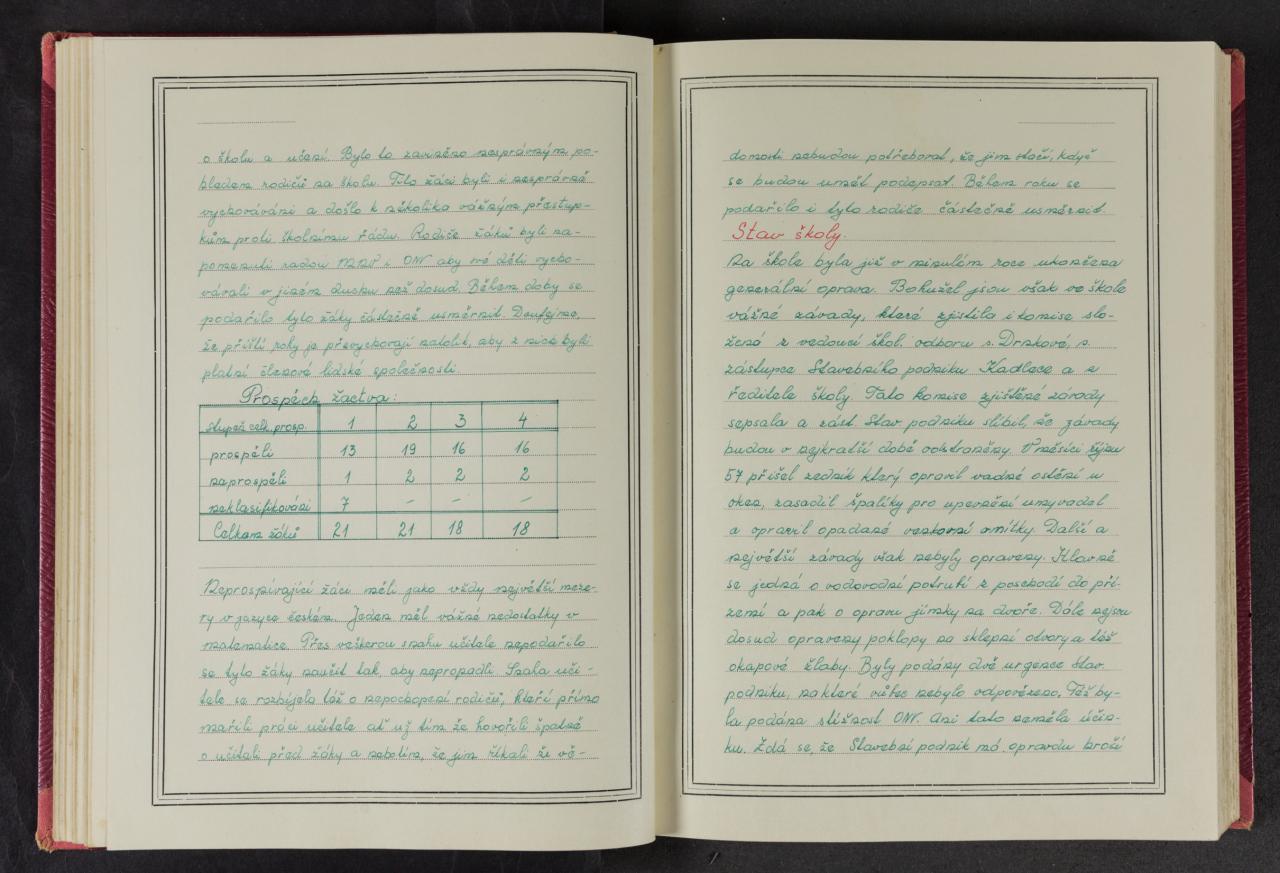 o školu a učení. Bylo to zaviněno nesprávným po-
hledem rodičů na školu. Tito žáci byli i nesprávně
vychováváni a došlo k několika vážným přestup-
kům proti školnímu řádu. Rodiče žáků byli na-
pomenuti radou MNV i ONV aby své děti vycho-
vávali v jiném duchu než dosud. Během doby se
podařilo tyto žáky částečně usměrnit. Doufejme,
že příští roky je převychovají natolik, aby z nich byli
platní členové lidské společnosti.
Prospěch žactva:
stupeň celk. prosp. 1 2 3 4
prospěli 13 19 16 16
neprospěli 1 2 2 2
neklasifikováni 7 – – –
Celkem žáků 21 21 18 18
Neprospívající žáci měli jako vždy největší meze-
ry v jazyce českém. Jeden měl vážné nedostatky v
matematice. Přes veškerou snahu učitele nepodařilo
se tyto žáky naučit tak, aby nepropadli. Snaha uči-
tele se rozbíjela též o nepochopení rodičů, kteří přímo
mařili práci učitele ať už tím že hovořili špatně
o učiteli před žáky a nebo tím, že jim říkali že vě-
domosti nebudou potřebovat, že jim stačí, když
se budou umět podepsat. Během roku se
podařilo i tyto rodiče částečně usměrnit.
Stav školy.
Na škole byla již v minulém roce ukončena
generální oprava. Bohužel jsou však ve škole
vážné závady, které zjistila i komise slo-
žená z vedoucí škol. odboru s. Drnkové, s.
zástupce Stavebního podniku Kadlece a z
ředitele školy. Tato komise zjištěné závady
sepsala a zást. Stav. podniku slíbil, že závady
budou v nejkratší době odstraněny. V měsíci říjnu
57 přišel zedník který opravil vadné ostění u
oken, zasadil špalíky pro upevnění umyvadel
a opravil opadané venkovní omítky. Další a
největší závady však nebyly opraveny. Hlavně
se jedná o vodovodní potrubí z poschodí do pří-
zemí a pak o opravu jímky na dvoře. Dále nejsou
dosud opraveny poklopy na sklepní otvory a též
okapové žlaby. Byly podány dvě urgence Stav.
podniku, na které vůbec nebylo odpovězeno. Též by-
la podána stížnost ONV. Ani tato neměla účin-
ku. Zdá se, že Stavební podnik má opravdu hroší